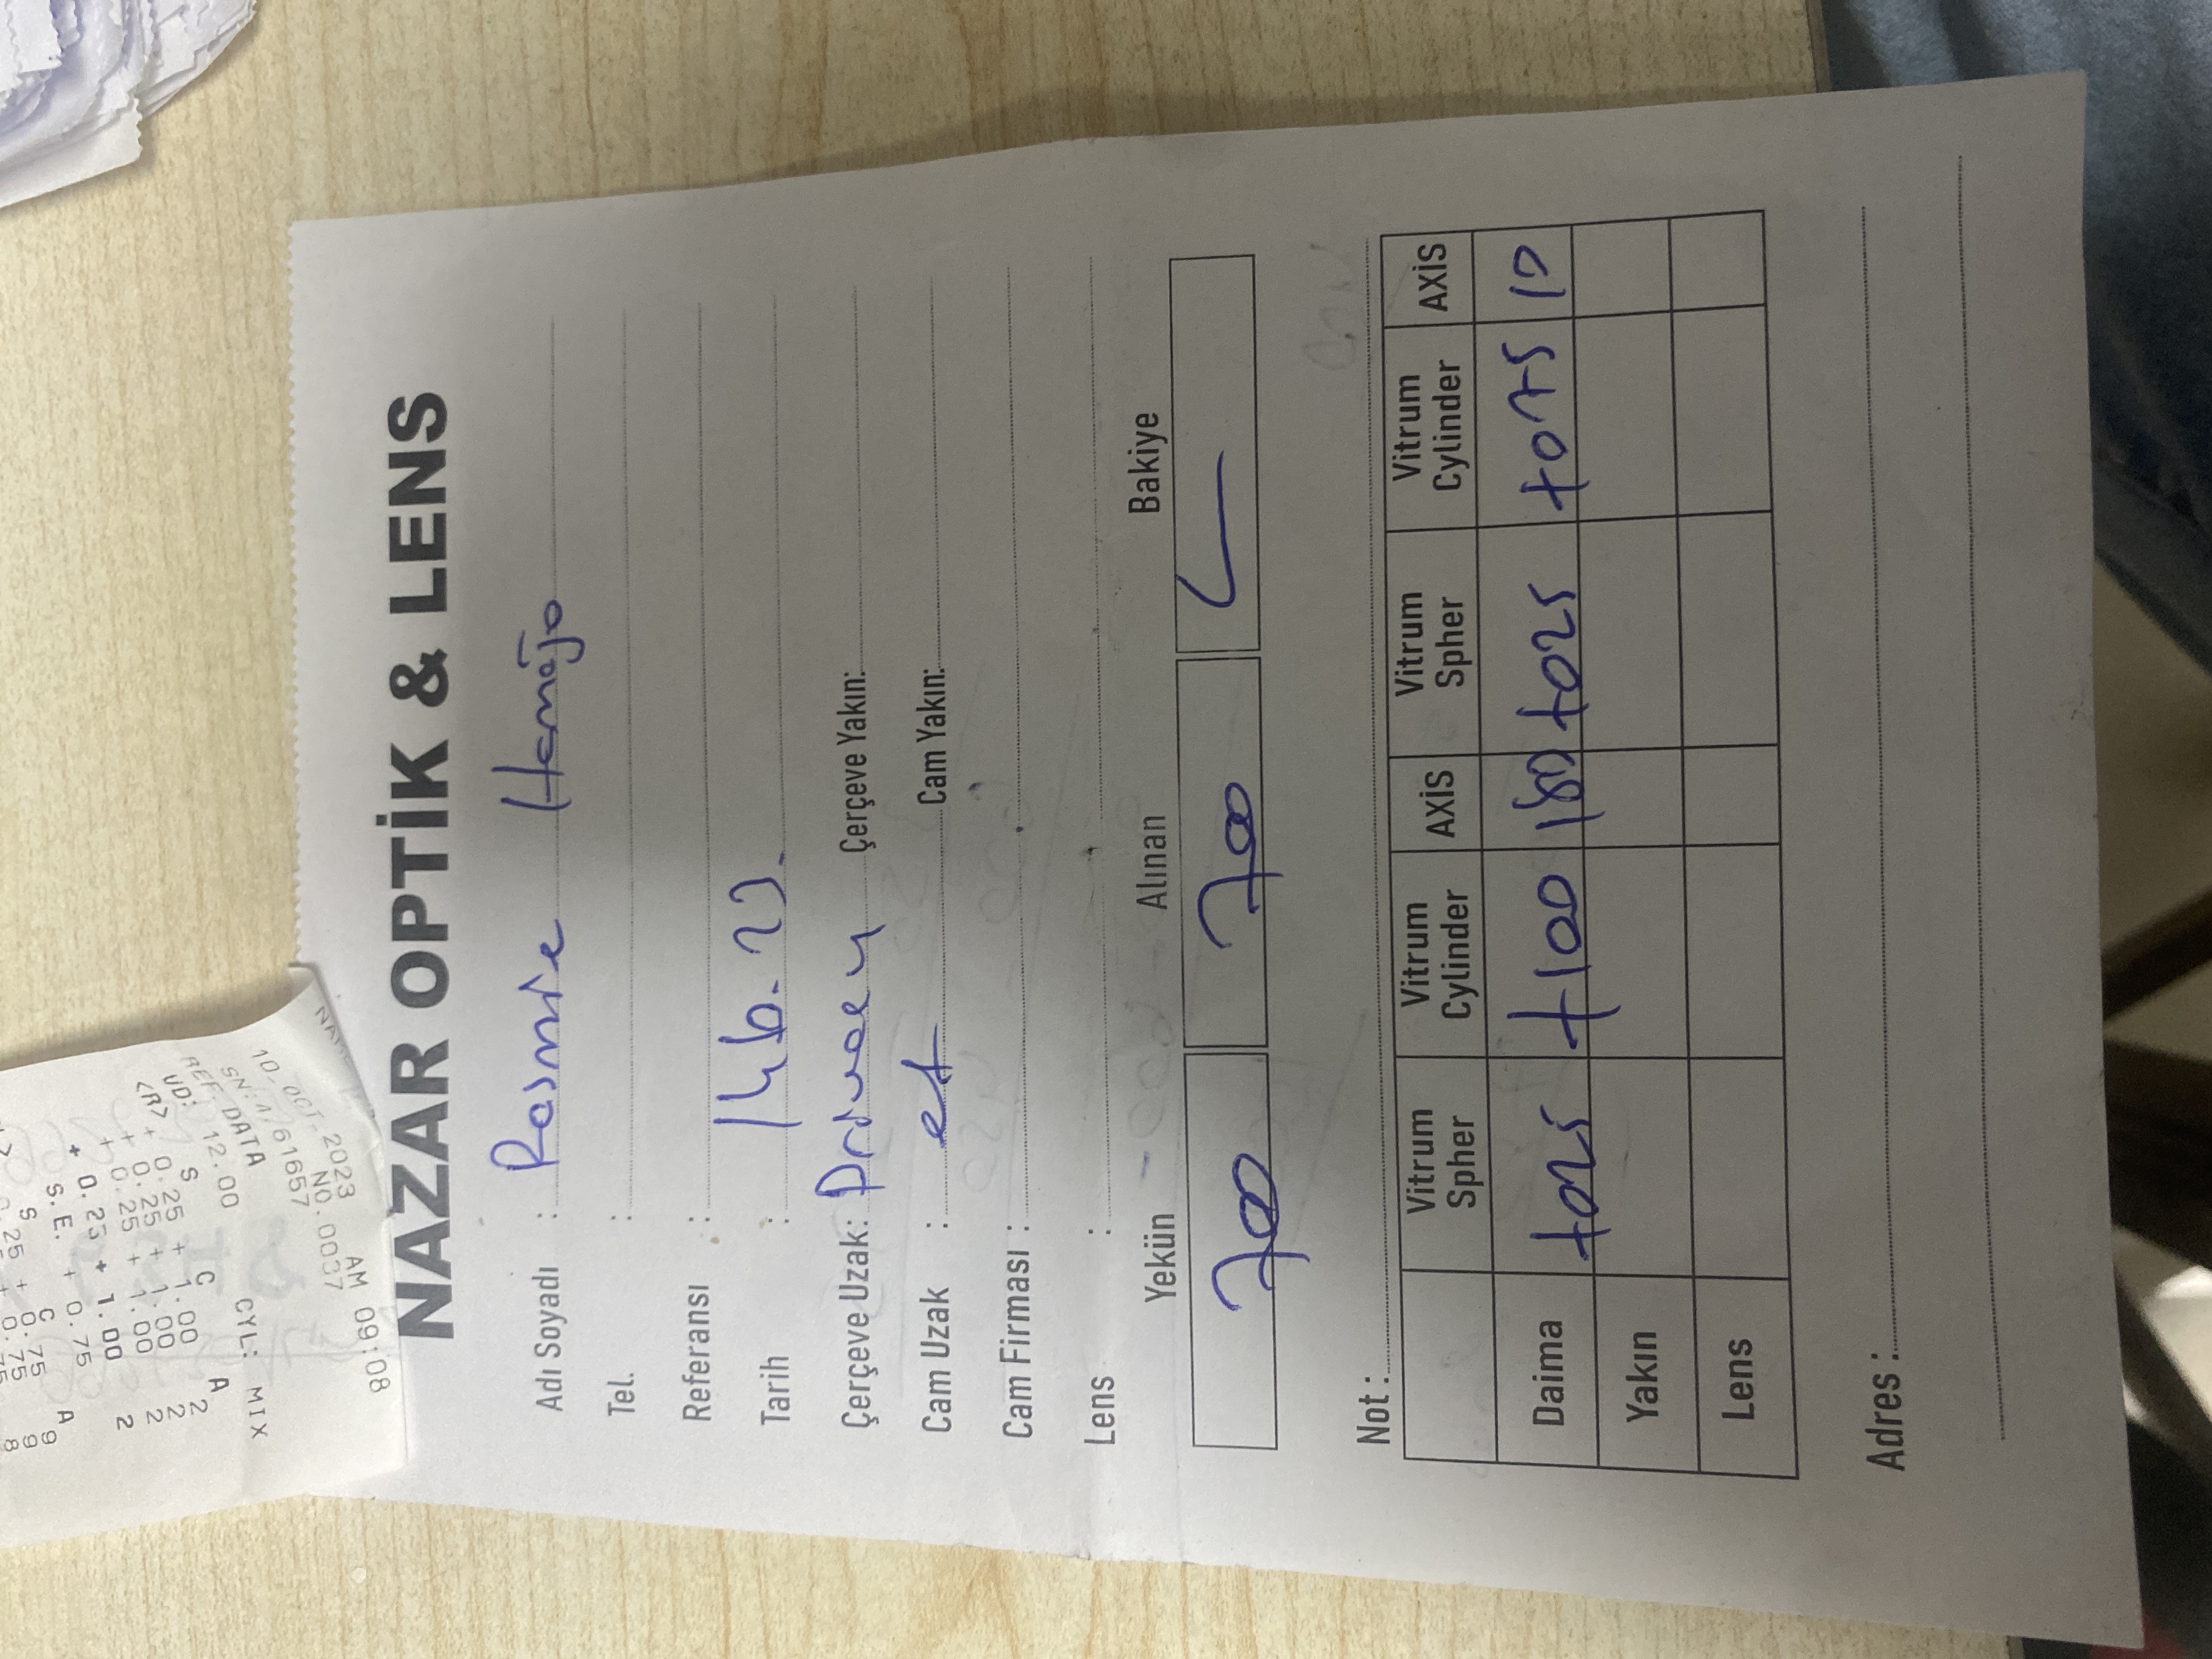 NAME
10_OCT_2023 AM 09:08
NO.0037
REF. DATA
VD: 12.00 CYL: MIX
<R> S C A
+ 0.25 + 1.00 2
+ 0.25 + 1.00 2
+ 0.25 + 1.00 2
* 0.25 + 1.00 2
S.E. + 0.75
S C A
NAZAR OPTİK & LENS
Adı Soyadı : Rasmie Hamajo
Tel. :
Referansı :
Tarih : 14.6.23.
Çerçeve Uzak: Privacy Çerçeve Yakın:
Cam Uzak : Cam Yakın:
Cam Firması :
Lens :
Yekün Alınan Bakiye
700 700
Not :
Vitrum Spher Vitrum Cylinder AXİS Vitrum Spher Vitrum Cylinder AXİS
Daima +025 +100 180 +025 +075 10
Yakın
Lens
Adres :